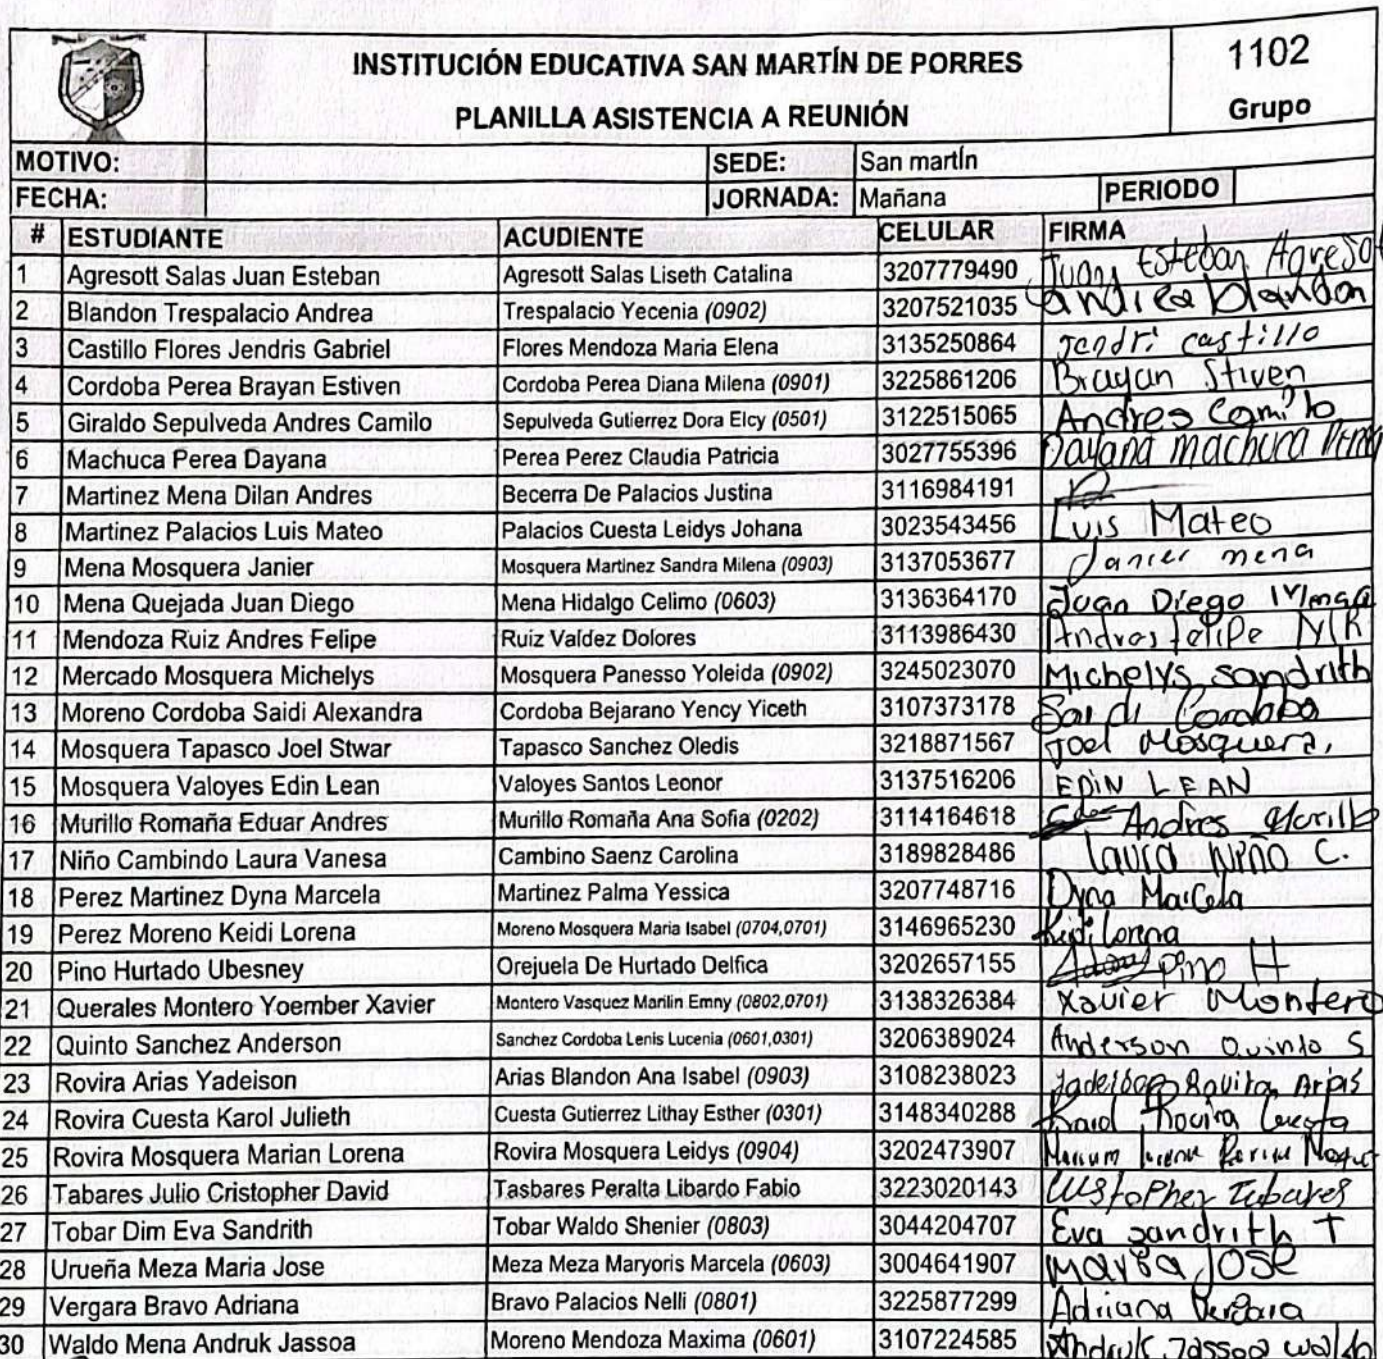 INSTITUCIÓN EDUCATIVA SAN MARTÍN DE PORRES
PLANILLA ASISTENCIA A REUNIÓN
1102
Grupo
MOTIVO: SEDE: San martín
FECHA: JORNADA: Mañana PERIODO
# ESTUDIANTE ACUDIENTE CELULAR FIRMA
1 Agresott Salas Juan Esteban Agresott Salas Liseth Catalina 3207779490 Juan Esteban Agresot
2 Blandon Trespalacio Andrea Trespalacio Yecenia (0902) 3207521035 andrea blandon
3 Castillo Flores Jendris Gabriel Flores Mendoza Maria Elena 3135250864 Jendri castillo
4 Cordoba Perea Brayan Estiven Cordoba Perea Diana Milena (0901) 3225861206 Brayan Stiven
5 Giraldo Sepulveda Andres Camilo Sepulveda Gutierrez Dora Elcy (0501) 3122515065 Andres Camilo
6 Machuca Perea Dayana Perea Perez Claudia Patricia 3027755396 Dayana machuca
7 Martinez Mena Dilan Andres Becerra De Palacios Justina 3116984191
8 Martinez Palacios Luis Mateo Palacios Cuesta Leidys Johana 3023543456 Luis Mateo
9 Mena Mosquera Janier Mosquera Martinez Sandra Milena (0903) 3137053677 Janier mena
10 Mena Quejada Juan Diego Mena Hidalgo Celimo (0603) 3136364170 Juan Diego Mena
11 Mendoza Ruiz Andres Felipe Ruiz Valdez Dolores 3113986430 Andres felipe MR
12 Mercado Mosquera Michelys Mosquera Panesso Yoleida (0902) 3245023070 Michelys Sandrith
13 Moreno Cordoba Saidi Alexandra Cordoba Bejarano Yency Yiceth 3107373178 Saidi Cordoba
14 Mosquera Tapasco Joel Stwar Tapasco Sanchez Oledis 3218871567 Joel Mosquera,
15 Mosquera Valoyes Edin Lean Valoyes Santos Leonor 3137516206 EDIN LEAN
16 Murillo Romaña Eduar Andres Murillo Romaña Ana Sofia (0202) 3114164618 Andres Murillo
17 Niño Cambindo Laura Vanesa Cambino Saenz Carolina 3189828486 laura Niño C.
18 Perez Martinez Dyna Marcela Martinez Palma Yessica 3207748716 Dyna Marcela
19 Perez Moreno Keidi Lorena Moreno Mosquera Maria Isabel (0704,0701) 3146965230 Keidi lorena
20 Pino Hurtado Ubesney Orejuela De Hurtado Delfica 3202657155 pino H
21 Querales Montero Yoember Xavier Montero Vasquez Marilin Emny (0802,0701) 3138326384 Xavier Montero
22 Quinto Sanchez Anderson Sanchez Cordoba Lenis Lucenia (0601,0301) 3206389024 Anderson Quinto S
23 Rovira Arias Yadeison Arias Blandon Ana Isabel (0903) 3108238023 Yadeison Rovira Arias
24 Rovira Cuesta Karol Julieth Cuesta Gutierrez Lithay Esther (0301) 3148340288 Karol Rovira Cuesta
25 Rovira Mosquera Marian Lorena Rovira Mosquera Leidys (0904) 3202473907
26 Tabares Julio Cristopher David Tasbares Peralta Libardo Fabio 3223020143 Cristopher Tabares
27 Tobar Dim Eva Sandrith Tobar Waldo Shenier (0803) 3044204707 Eva sandrith T
28 Urueña Meza Maria Jose Meza Meza Maryoris Marcela (0603) 3004641907 maria JOSE
29 Vergara Bravo Adriana Bravo Palacios Nelli (0801) 3225877299 Adriana Vergara
30 Waldo Mena Andruk Jassoa Moreno Mendoza Maxima (0601) 3107224585 Andruk Jassoa waldo